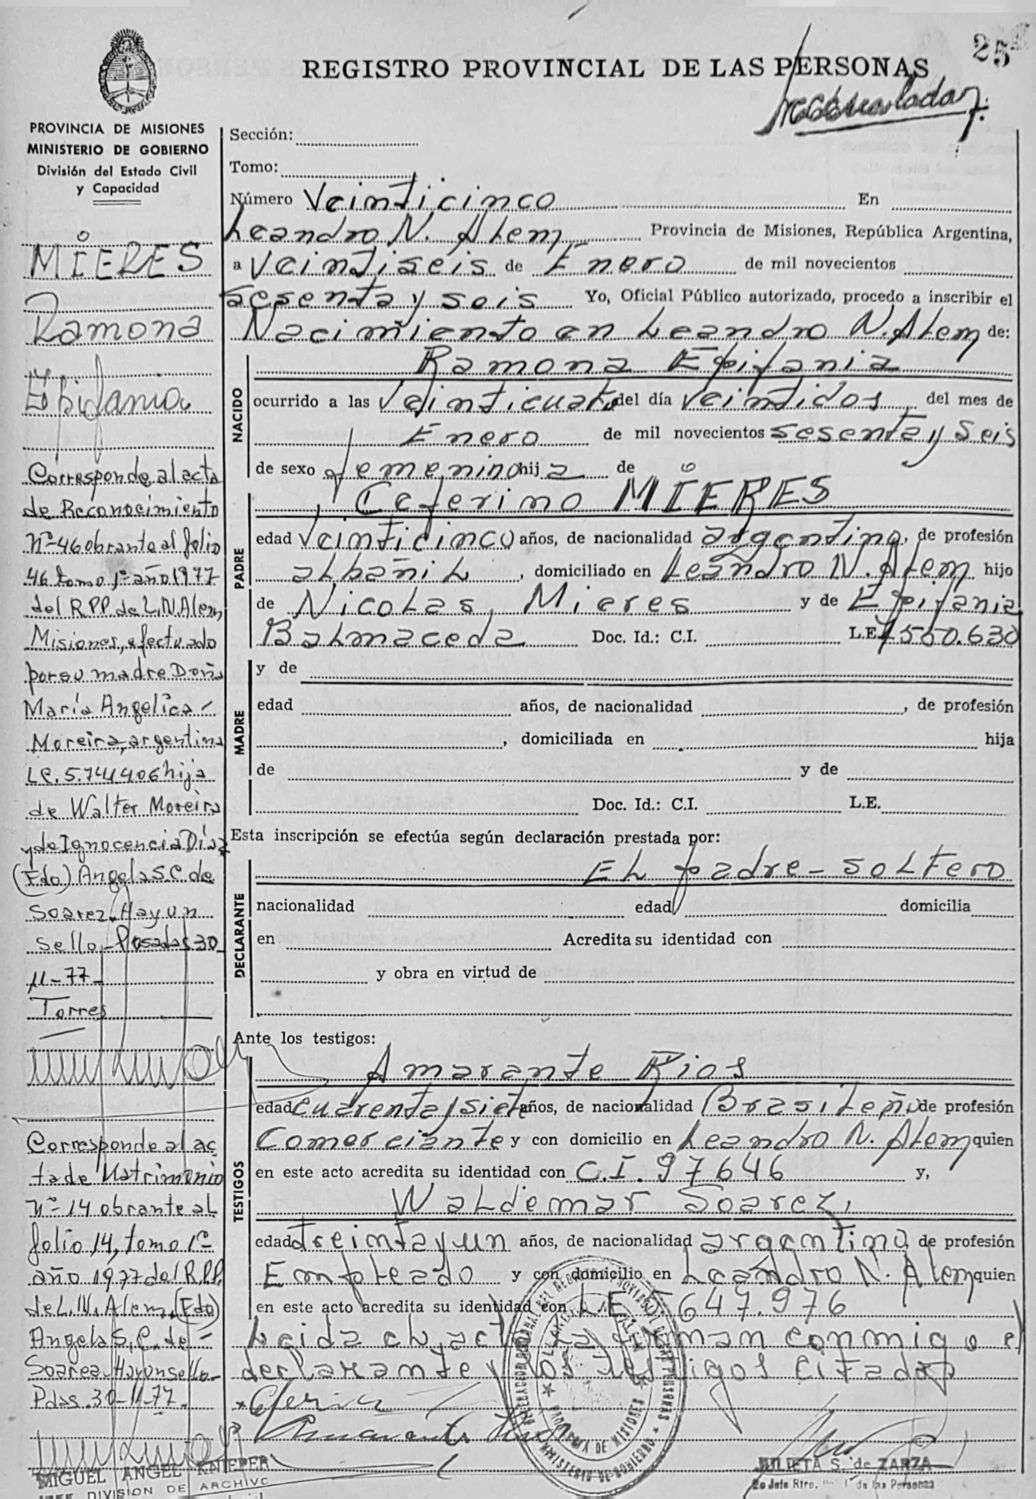 25
REGISTRO PROVINCIAL DE LAS PERSONAS
PROVINCIA DE MISIONES
MINISTERIO DE GOBIERNO
División del Estado Civil
y Capacidad
MIERES
Ramona
Epifania
Corresponde al acta
de Reconocimiento
Nº 46 obrante al folio
46 tomo 1º año 1977
del R.P.P. de L.N. Alem,
Misiones, efectuado
por su madre Doña
María Angelica
Moreira, argentina
L.C. 5.741406 hija
de Walter Moreira
y de Ignocencia Díaz
(Fdo) Angela S.C. de
Soarez. Hay un
Sello. Posadas 30
11-77-
Torres
Corresponde al ac
ta de Matrimonio
Nº 14 obrante al
folio 14, tomo 1º
año 1977 del R.P.P.
de L.N. Alem, (Fdo)
Angela S. C. de
Soarez. Hay un sello
Pdas. 30-11-77.
MIGUEL ANGEL KNIEPER
JEFE DIVISION DE ARCHIVO
Sección:
Tomo:
Número Veinticinco En
Leandro N. Alem, Provincia de Misiones, República Argentina,
a veintiseis de Enero de mil novecientos
sesenta y seis Yo, Oficial Público autorizado, procedo a inscribir el
Nacimiento en Leandro N. Alem de:
NACIDO
Ramona Epifania
ocurrido a las Veinticuatro del día veintidos, del mes de
Enero de mil novecientos sesenta y seis
de sexo femenino hija de
PADRE
Ceferino MIERES
edad veinticinco años, de nacionalidad argentina, de profesión
albañil, domiciliado en Leandro N. Alem hijo
de Nicolas, Mieres y de Epifania
Balmaceda Doc. Id.: C.I. L.E. 7550.630
MADRE
y de
edad años, de nacionalidad , de profesión
, domiciliada en hija
de y de
Doc. Id.: C.I. L.E.
Esta inscripción se efectúa según declaración prestada por:
DECLARANTE
El padre - soltero
nacionalidad edad domicilia
en Acredita su identidad con
y obra en virtud de
Ante los testigos:
TESTIGOS
Amarante Rios
edad cuarenta y siete años, de nacionalidad Brasileño de profesión
Comerciante y con domicilio en Leandro N. Alem quien
en este acto acredita su identidad con C.I. 97646 y,
Waldemar Soarez,
edad treinta y un años, de nacionalidad argentina de profesión
Empleado y con domicilio en Leandro N. Alem quien
en este acto acredita su identidad con L.E. 647.976
Leida el acta la firman conmigo el
declarante y los testigos citados
PROVINCIA DE MISIONES
MINISTERIO DE GOBIERNO
JULIETA S. de ZARZA
2o Jefe Rtro. de las Personas